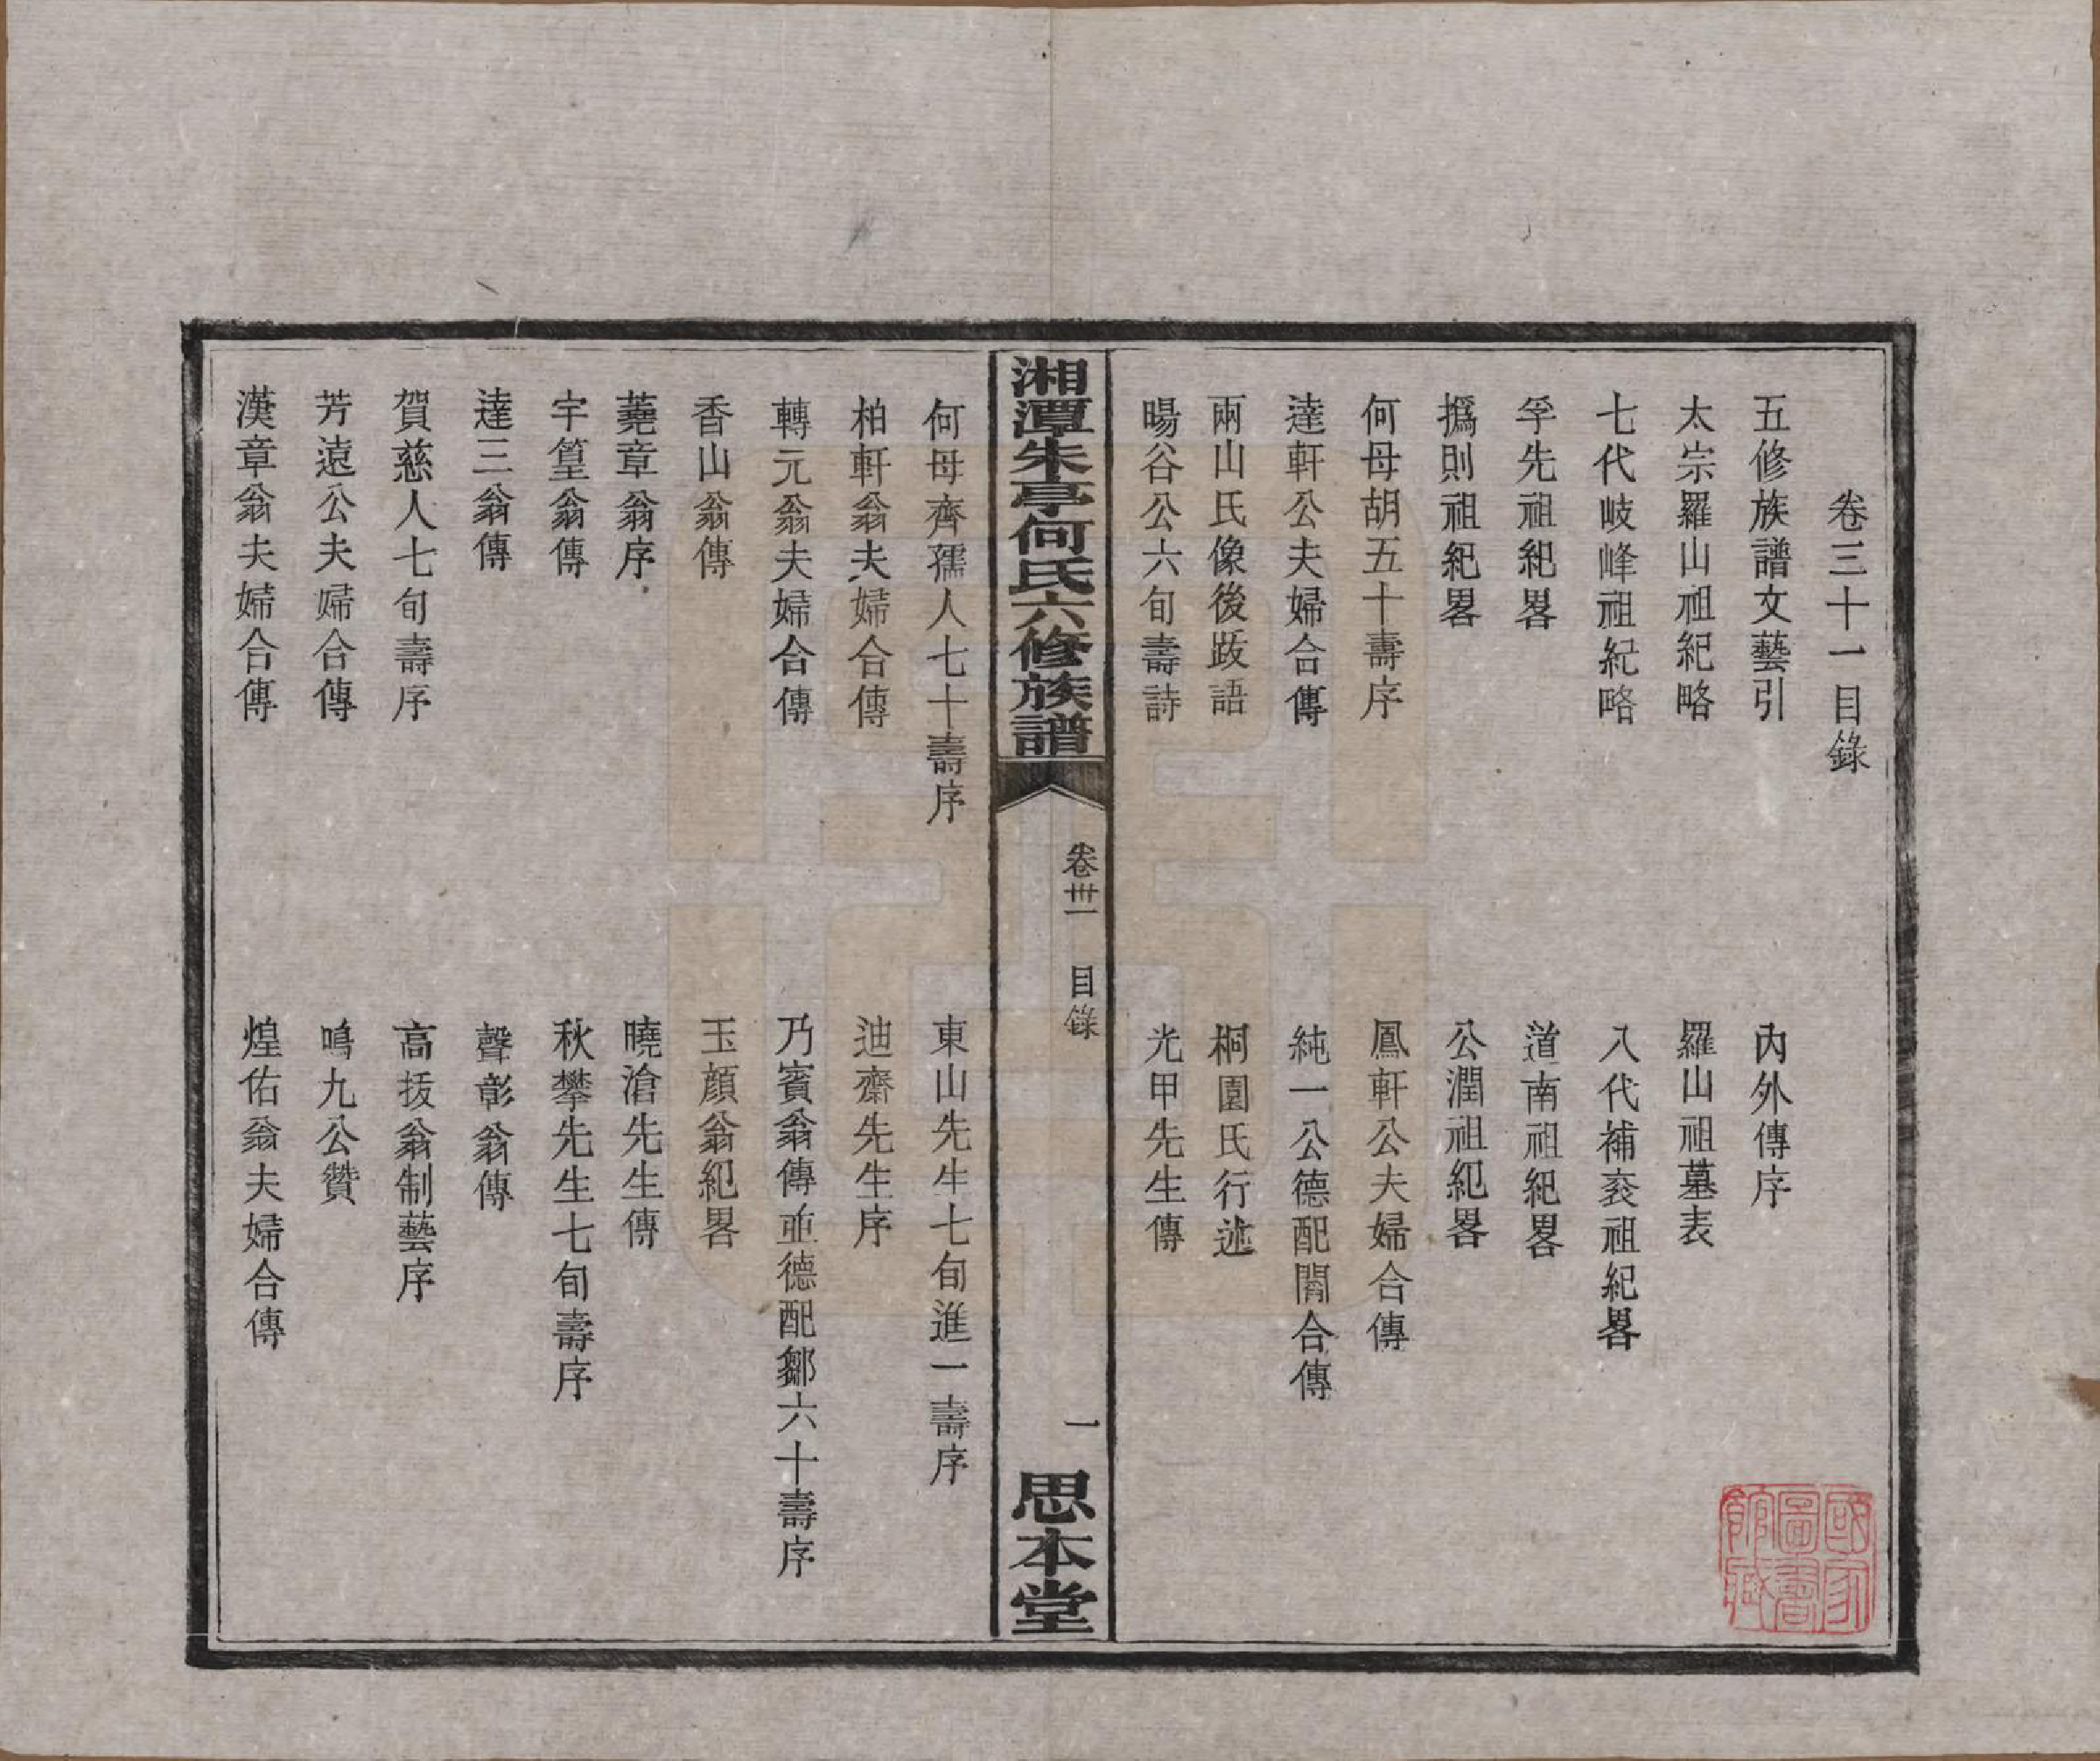 卷三十一目錄
五修族譜文藝引　內外傳序
太宗羅山祖紀略　羅山祖墓表
七代岐峰祖紀略　八代補袞祖紀畧
孚先祖紀畧　道南祖紀畧
撝則祖紀畧　公潤祖紀畧
何母胡五十壽序　鳳軒公夫婦合傳
達軒公夫婦合傳　純一公德配閻合傳
兩山氏像後跋語　桐園氏行述
暘谷公六旬壽詩　光甲先生傳
湘潭朱亭何氏六修族譜　卷卅一　目錄　一　思本堂
何母齊孺人七十壽序　東山先生七旬進一壽序
柏軒翁夫婦合傳　迪齋先生序
轉元翁夫婦合傳　乃賓翁傳並德配鄒六十壽序
香山翁傳　玉顏翁紀畧
蕘章翁序　曉滄先生傳
宇篁翁傳　秋攀先生七旬壽序
達三翁傳　聲彰翁傳
賀慈人七旬壽序　高拔翁制藝序
芳遠公夫婦合傳　鳴九公贊
漢章翁夫婦合傳　煌佑翁夫婦合傳
國家圖書館藏